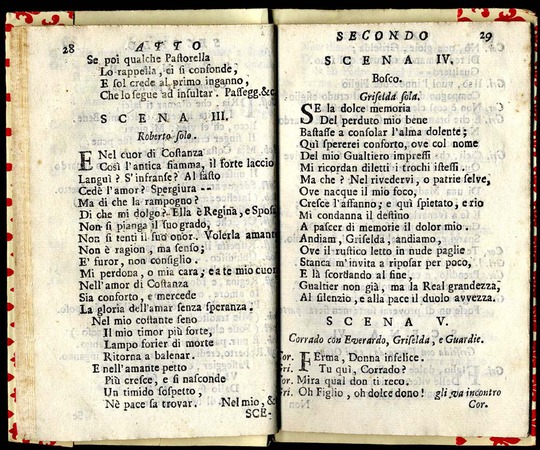 28 ATTO
Se poi qualche Pastorella
Lo rappella, ei si confonde,
E sol crede al primo inganno,
Che lo segue ad insultar. Passegg.&c
SCENA III.
Roberto solo.
E Nel cuor di Costanza
Così l'antica fiamma, il forte laccio
Languì? S'infranse? Al fasto
Cedè l'amor? Spergiura --
Ma di che la rampogno?
Di che mi dolgo? Ella è Regina, e Spos
Non si pianga il suo grado,
Non si tenti il suo onor. Volerla amant
Non è ragion, ma senso;
E' furor, non consiglio.
Mi perdona, o mia cara, e a te mio cuor
Nell'amor di Costanza
Sia conforto, e mercede
La gloria dell'amar senza speranza.
Nel mio costante seno
Il mio timor più forte,
Lampo forier di morte
Ritorna a balenar.
E nell'amante petto
Più cresce, e si nasconde
Un timido sospetto,
Nè pace sa trovar. Nel mio, &
SCE-
SECONDO 29
SCENA IV.
Bosco.
Griselda sola.
SE la dolce memoria
Del perduto mio bene
Bastasse a consolar l'alma dolente;
Quì spererei conforto, ove col nome
Del mio Gualtiero impressi
Mi ricordan diletti i trochi istessi.
Ma che? Nel rivedervi, o patrie selve,
Ove nacque il mio foco,
Cresce l'affanno; e quì spietato, e rio
Mi condanna il destino
A pascer di memorie il dolor mio.
Andiam, Griselda, andiamo,
Ove il rustico letto in nude paglie
Stanca m'invita a riposar per poco,
E là scordando al fine,
Gualtier non già, ma la Real grandezza,
Al silenzio, e alla pace il duolo avvezza.
SCENA V.
Corrado con Everardo, Griselda, e Guardie.
Cor. FErma, Donna infelice.
Gri. Tu quì, Corrado?
Cor. Mira qual don ti reco.
Gri. Oh Figlio, oh dolce dono! gli va incontro
Cor.